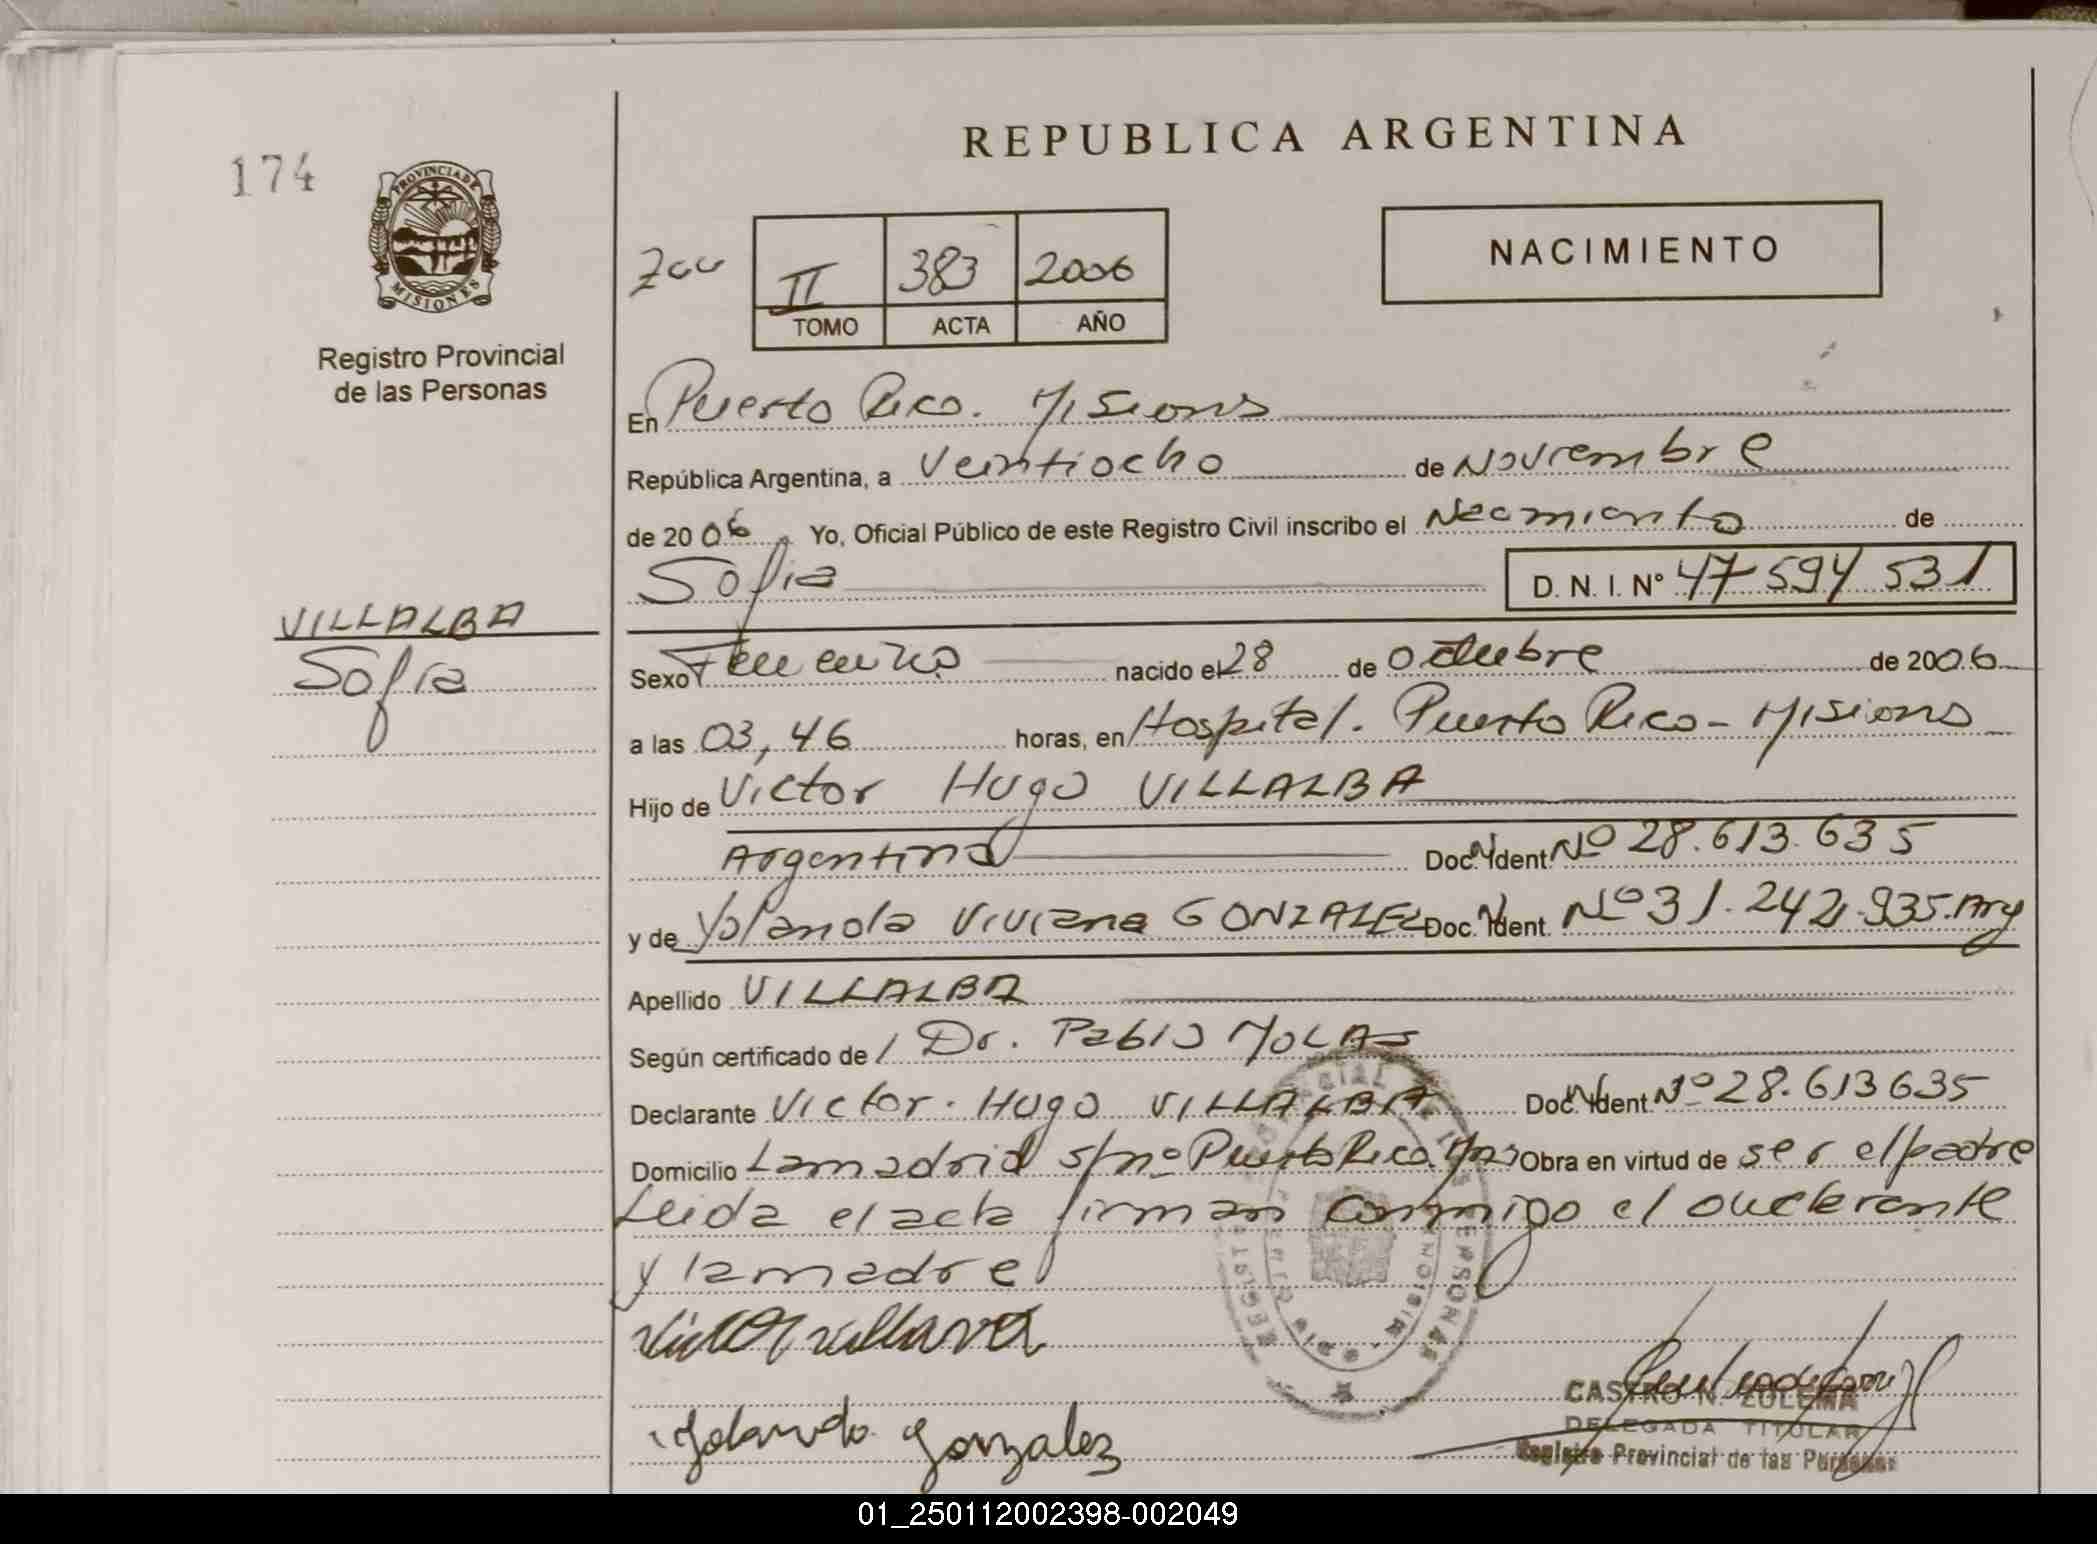 REPUBLICA ARGENTINA
174
PROVINCIA DE
MISIONES
Registro Provincial
de las Personas
NACIMIENTO
II 383 2006
TOMO ACTA AÑO
En Puerto Rico. Misiones
República Argentina, a Veintiocho de Noviembre
de 2006 Yo, Oficial Público de este Registro Civil inscribo el Nacimiento de
Sofia D. N. I. Nº 47 594 531
VILLALBA
Sofia
Sexo Femenino nacido el 28 de octubre de 2006
a las 03,46 horas, en Hospital. Puerto Rico - Misiones
Hijo de Victor Hugo VILLALBA
Argentina Doc. Ident Nº 28.613.635
y de Yolanda Viviana GONZALEZ Doc. Ident. Nº 31.242.935. Arg
Apellido VILLALBA
Según certificado de Dr. Pablo MOLAS
Declarante Victor Hugo VILLALBA Doc. Ident. Nº 28.613635
Domicilio Lamadrid s/nº Puerto Rico Mnes Obra en virtud de ser el padre
Leida el acta firman conmigo el declarante
y la madre
Yolanda Gonzalez
CASTRO N. ZULEMA
DELEGADA TITULAR
Registro Provincial de las Personas
01_250112002398-002049